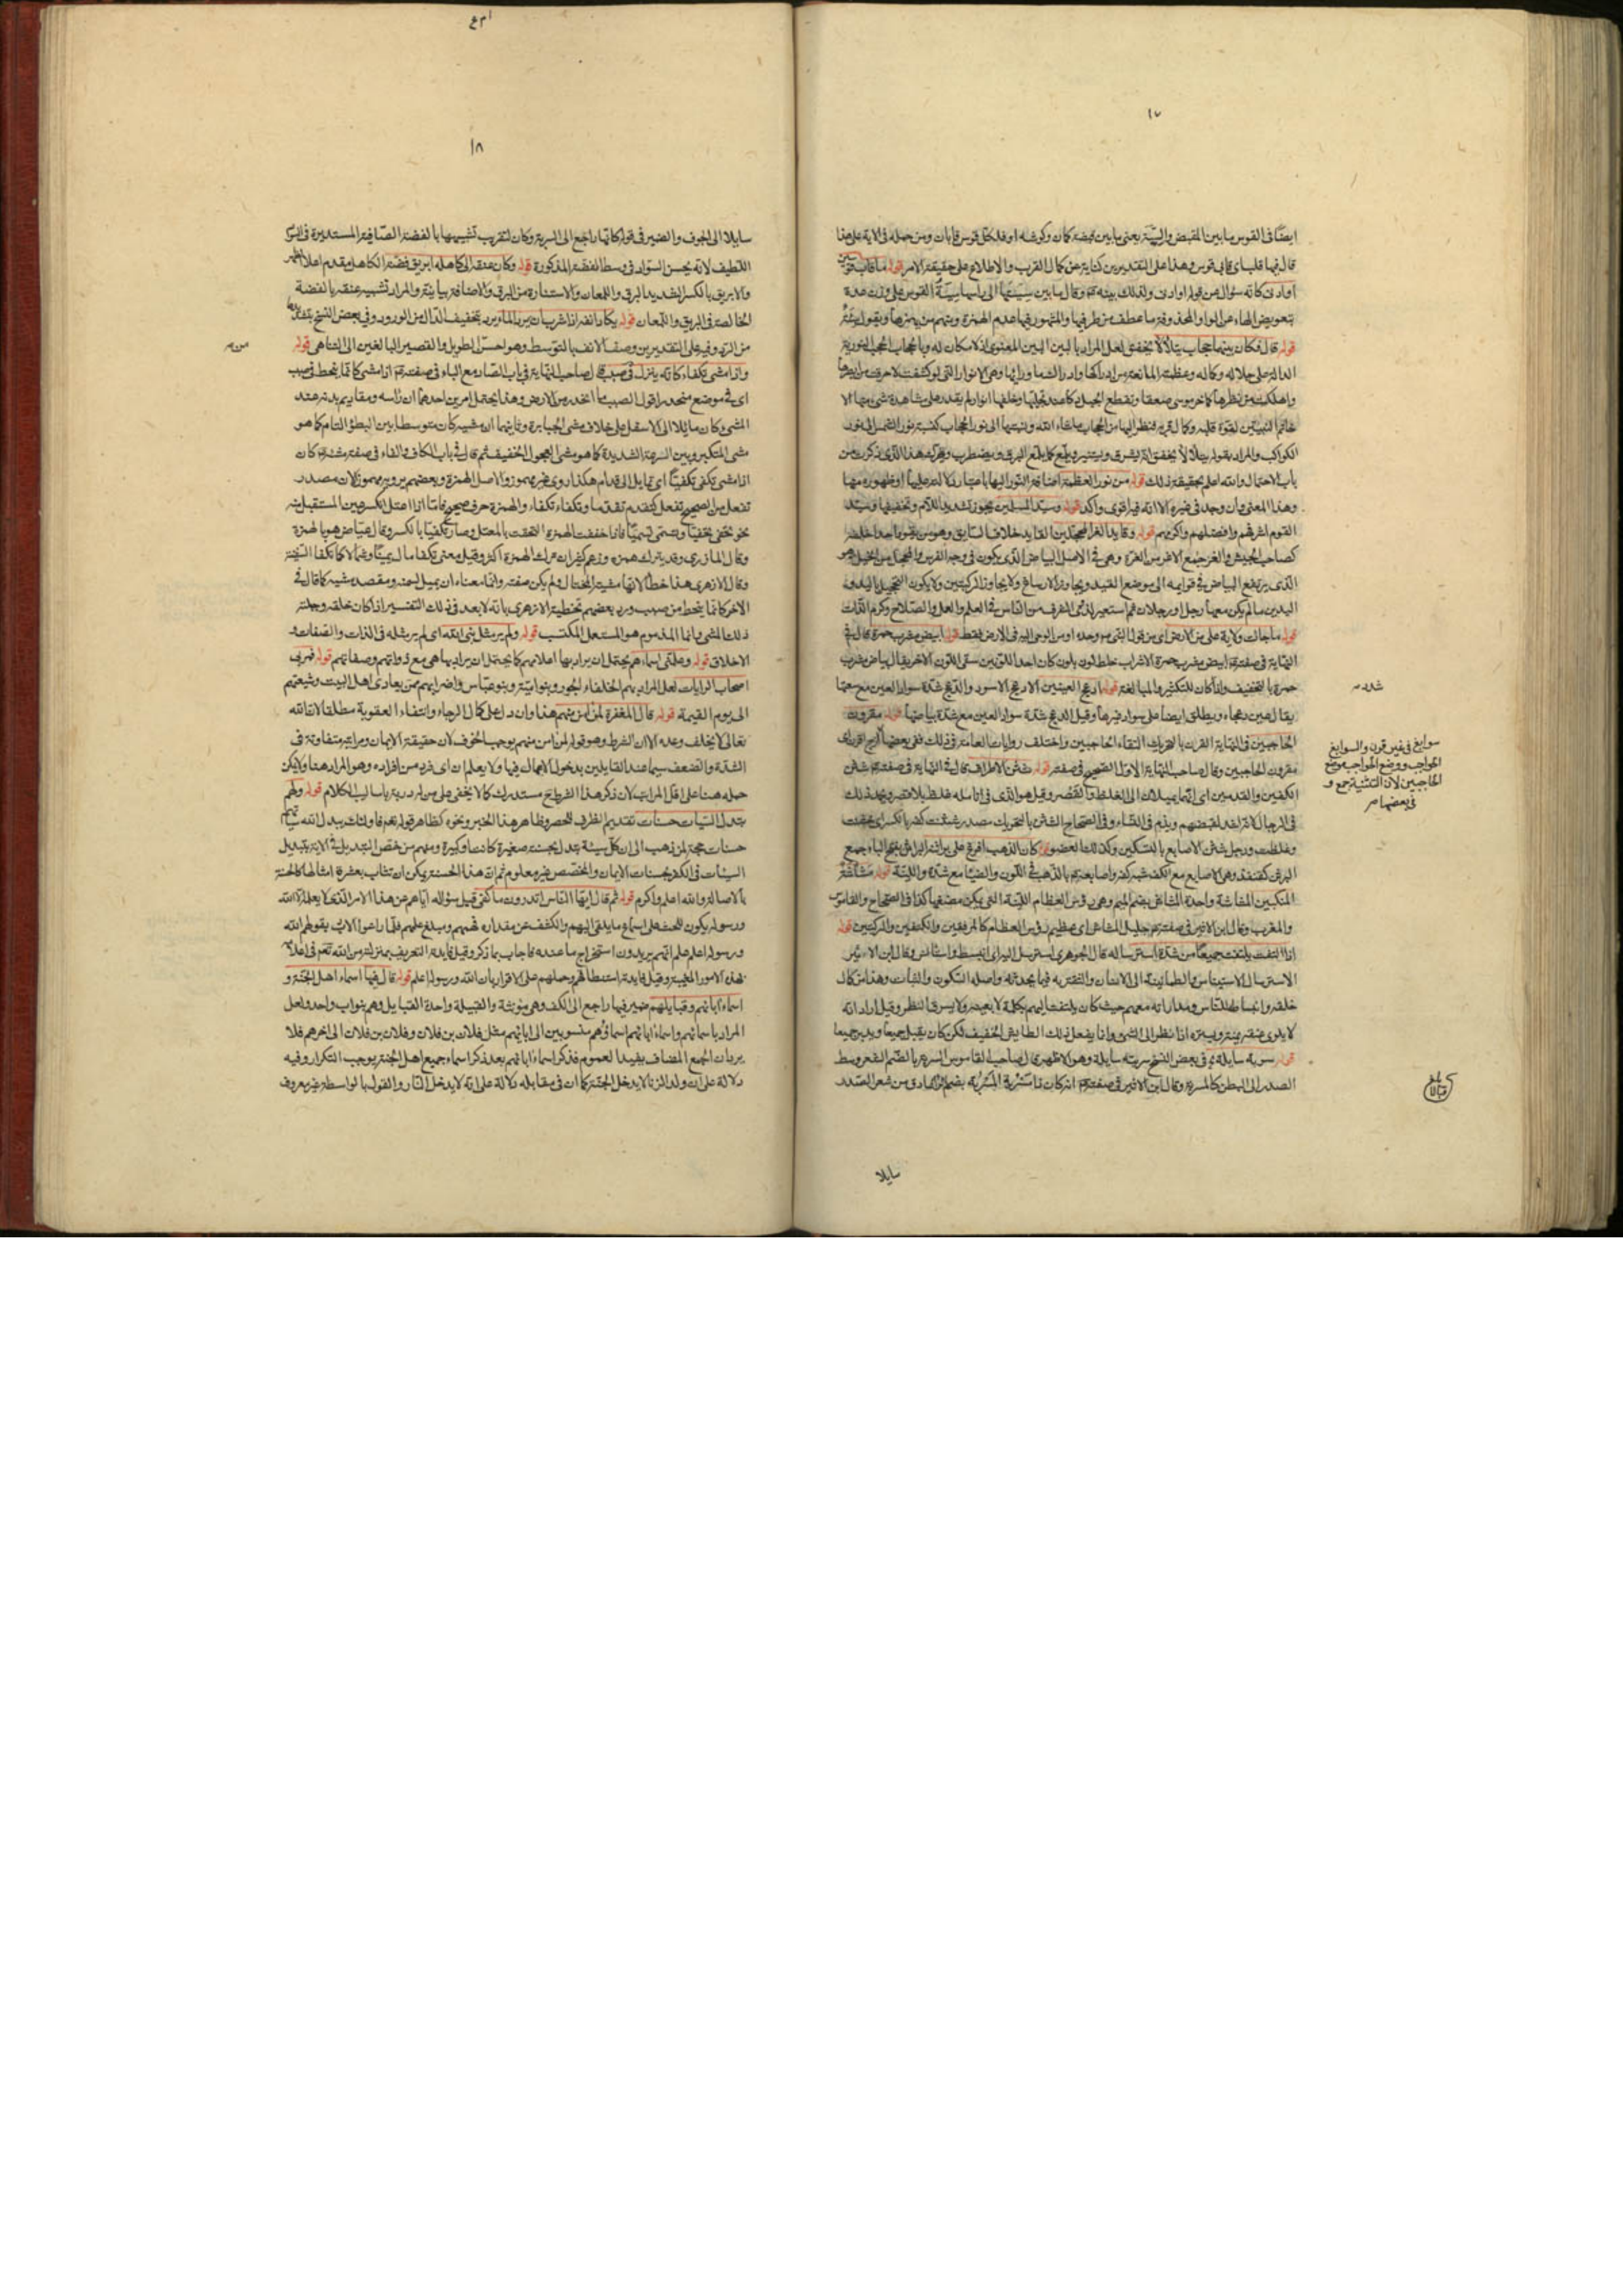 ١٧
ايضًا فى القوس ما بين المقبض والسية يعنى ما بين قبضه كمان وكوشه او فلكل قوس قابان ومن حمله فى الاية على هذا
قال فيها قلبا اى قابى قوس وهذا على التقديرين كناية عن كمال القرب والاطلاع على حقيقة الامر قوله ما قاب قوسين
او ادنى كانه سؤال عن قوله او ادنى ولذلك بينه وقال ما بين سيتها الى راسها سية القوس على وزن عدة
بتعويض الهاء عن الواو المحذوفة ما عطف من طرفيها والمشهور فيها عدم الهمزة ومنهم من يهمزها ويقول
قوله قال فكان بينهما حجاب يتلألأ يخفق لعل المراد بالبين البين المعنوى اذ لا مكان له وبالحجاب الحجب النورية
الدالة على جلاله وكماله وعظمته المانعة من ادراكها وادراك ما ورائها وهى الانوار التى لو كشفت لاحرقت من
واهلكت من نظرها كما خر موسى صعقا وتقطع الجبل دكا عند تجليها وخلفها انوار لم يقدر على مشاهدة شئ منها الا
خاتم النبيين لقوة قلبه وكمال قربه فنظر اليها من الحجاب ما شاء الله ونسبتها الى نور الحجاب كنسبة نور الشمس الى نور
الكواكب والمراد بقوله يتلألأ يخفق انه يشرق ويستنير ويلمع كما يلمع البرق ويضطرب ويتحرك هذا الذى ذكرت من
باب الاحتمال والله اعلم بحقيقة ذلك قوله من نور العظمة اضافة النور اليها باعتبار دلالته عليها او ظهوره منها
وهذا المعنى وان وجد فى غيره الا انه فيه اقوى واكد قوله وسيد المسلمين يجوز تشديد اللام وتخفيفها وسيد
القوم اشرفهم وافضلهم واكرمهم قوله وقايد الغر المحجلين القايد خلاف السايق وهو من يقوم
كصاحب الجيش والغر جمع الاغر من الغرة وهى فى الاصل البياض الذى يكون فى وجه الفرس والمحجل من الخيل هو
الذى يرتفع البياض فى قوايمه الى موضع القيد ويجاوز الارساغ ولا يجاوز الركبتين ولا يكون التحجيل باليد و
اليدين ما لم يكن معها رجل او رجلان ثم استعير لذى الشرف من الناس فى العلم والعمل والصلاح وكرم الذات
قوله ما جاءت ولاية على من الارض اى من قول النبى من وحده او من الوحى اليه فى الارض فقط قوله ابيض مشرب حمرة قال فى
النهاية فى صفته ابيض مشرب حمرة الاشراب خلط لون بلون كان احد اللونين سقى اللون الاخر يقال بياض مشرب
حمرة بالتخفيف واذا كان للتكثير والمبالغة قوله ادعج العينين الادعج الاسود والدعج شدة سواد العين مع سعتها
يقال عين دعجاء ويطلق ايضا على سواد غيرها وقيل الدعج شدة سواد العين مع شدة بياضها قوله مقرون
الحاجبين فى النهاية القرن بالتحريك التقاء الحاجبين واختلف روايات العامة فى ذلك ففى بعضها ازج اقرن اى
مقرون الحاجبين وقال صاحب النهاية الاول الصحيح فى صفته قوله شثن الاطراف قال فى النهاية فى صفته شثن
الكفين والقدمين اى انهما يميلان الى الغلظ والقصر وقيل هو الذى فى انامله غلظ بلا قصر ويحمد ذلك
فى الرجال لانه اشد لقبضهم ويذم فى النساء وفى الصحاح الشثن بالتحريك مصدر شثنت كفه بالكسر اى خشنت
وغلظت ورجل شثن الاصابع بالتسكين وكذلك العضو قوله كان الذهب افرغ على براثنه البراثن بفتح الباء جمع
البرثن كقنفذ وهى الاصابع مع الكف شبه كفه واصابعه بالذهب فى اللون والضياء مع شدة واللينة قوله مشاشة
المنكبين المشاشة واحدة المشاش بضم الميم وهى رؤس العظام اللينة التى يمكن مضغها كذا فى الصحاح والقاموس
والمغرب وقال ابن الاثير فى صفته جليل المشاش اى عظيم رؤس العظام كالمرفقين والكتفين والركبتين قوله
اذا التفت يلتفت جميعا من شدة استرساله قال الجوهرى استرسل اليه اى انبسط واستانس وقال ابن الاثير
الاسترسال الاستيناس والطمانينة الى الانسان والثقة به فيما يحدثه واصله السكون والثبات وهذا من كمال
خلقه وانبساطه للناس ومداراته معهم حيث كان يلتفت اليهم بكله لا ببعضه ولا يسرق النظر وقيل اراد انه
لا يلوى عنقه يمنة ويسرة اذا نظر الى الشئ وانما يفعل ذلك الطايش الخفيف لكن كان يقبل جميعا ويدبر جميعا
قوله سربه سايلة وفى بعض النسخ سربته سايلة وهو الاظهر قال صاحب القاموس السربة بالضم الشعر وسط
الصدر الى البطن كالمسربة وقال ابن الاثير فى صفته انه كان ذا مسربة المسربة بضم الراء ما دق من شعر الصدر
شدد صح
سوابغ فى غير قرن والسوابغ
الحواجب ووضع الحواجب موضع
الحاجبين لان التثنية جمع و
فى بعضها صر
بلغ
قبالا
سايلا
١٨
سايلا الى الجوف والضمير فى قوله كانها راجع الى السربة وكان لتقريب تشبيهها بالفضة الصافية المستديرة فى
اللطيف لانه يحسن السواد فى وسط الفضة المذكورة قوله وكان عنقه الى كاهله ابريق فضة الكاهل مقدم اعلا الظهر
والابريق بالكسر الشديد البرق واللمعان والاستنارة من البرق والاضافة بيانية والمراد تشبيه عنقه بالفضة
الخالصة فى البريق واللمعان قوله يكاد انفه اذا شرب ان يرد الماء يرد بتخفيف الدال من الورود وفى بعض النسخ بتشديد
من الرد وفيه على التقديرين وصف الانف بالتوسط وهو احسن الطويل والقصير البالغين الى التناهى قوله
واذا مشى تكفاء كانه ينزل فى صبب قال صاحب النهاية فى باب الصاد مع الباء فى صفته اذا مشى كانما ينحط فى صبب
اى فى موضع منحدر اقول الصبب ما انحدر من الارض وهذا يحتمل امرين احدهما ان راسه ومقاديم بدنه عند
المشى كان مائلا الى الاسفل على خلاف مشى الجبابرة وثانيهما ان مشيه كان متوسطا بين البطؤ التام كما هو
مشى المتكبر وبين السرعة الشديدة كما هو مشى العجول الخفيف ثم قال فى باب الكاف والفاء فى صفة مشيه كان
اذا مشى تكفى تكفيًا اى تمايل الى قدام هكذا روى غير مهموز والاصل الهمزة وبعضهم يرويه مهموزا لان مصدر
تفعل من الصحيح تفعل كتقدم تقدما وتكفاء تكفاء والهمزة حرف صحيح فاما اذا اعتل انكسر عين المستقبل منه
نحو تخفى تخفيا وتسمى تسميا فاذا خففت الهمزة التحقت بالمعتل وصار تكفيا بالكسر وقال عياض هو بالهمزة
وقال المازرى وقد يترك همزه وزعم كثير ان ترك الهمزة اكثر وقيل معنى تكفا مال يمينا وشمالا كما تكفا السفينة
وقال الازهرى هذا خطأ لانها مشية المختال ولم يكن صفته وانما معناه ان يميل لسمته ومقصد مشيه كما قال فى
الاخر كانما ينحط من صبب ورد بعضهم تخطئة الازهرى بانه لا بعد فى ذلك التفسير اذا كان خلقه وجبلته
ذلك المشى وانما المذموم هو المستعمل المكتسب قوله ولم ير مثل نبى الله اى لم ير مثله فى الذات والصفات و
الاخلاق قوله وعلمنى اسماءهم يحتمل ان يراد بها اعلامهم كما يحتمل ان يراد بها هى مع ذواتهم وصفاتهم قوله فمر بى
اصحاب الرايات لعل المراد بهم الخلفاء الجور وبنو امية وبنو عباس واضرابهم ممن يعادى اهل البيت وشيعتهم
الى يوم القيمة قوله قال المغفرة لمن امن منهم هذا وان دل على كمال الرجاء وانتفاء العقوبة مطلقا لان الله
تعالى لا يخلف وعده الا ان الشرط وهو قوله لمن امن منهم يوجب الخوف لان حقيقة الايمان ومراتبه متفاوتة فى
الشدة والضعف سيما عند القايلين بدخول الاعمال فيها ولا يعلم ان اى فرد من افراده هو المراد هنا ولا يمكن
حمله هنا على اقل المراتب لان ذكر هذا الشرط مستدرك كما لا يخفى على من له دربة باساليب الكلام قوله ولهم
تبدل السيات حسنات تقديم الظرف للحصر وظاهر هذا الخبر ونحوه كظاهر قوله تعم فاولئك يبدل الله سياتهم
حسنات حجة لمن ذهب الى ان كل سيئة تبدل بحسنة صغيرة كانت او كبيرة ومنهم من خص التبديل فى الاية بتبديل
السيئات فى الكفر بحسنات الايمان والمخصص غير معلوم ثم ان هذا الحسنة يمكن ان تثاب بعشرة امثالها كالحسنة
بالاصالة والله اعلم واكرم قوله ثم قال ايها الناس اتدرون ما كفى قيل سؤاله اياهم عن هذا الامر الذى لا يعلمه الا الله
ورسوله يكون للحث على استماع ما يلقى اليهم والكشف عن مقدار فهمهم ومبلغ علمهم فلما راعوا الادب بقولهم الله
ورسوله اعلم علم انهم يريدون استخراج ما عنده فاجاب بما ذكر وقيل فايدته التعريف بمنزلته من الله تعم فى
بهذه الامور المغيبة وقيل فايدته استنطاقهم وحملهم على الاقرار بان الله ورسوله اعلم قوله قال فيها اسماء اهل الجنة و
اسماء ابائهم وقبايلهم ضمير فيها راجع الى الكف وهى مؤنثة والقبيلة واحدة القبايل وهم بنو اب واحد ولعل
المراد باسمائهم واسماء ابائهم اسماؤهم منسوبين الى ابائهم مثل فلان بن فلان وفلان بن فلان الى اخرهم فلا
يرد ان الجمع المضاف يفيد العموم فذكر اسماء ابائهم بعد ذكر اسماء جميع اهل الجنة يوجب التكرار وفيه
دلالة على ان ولد الزنا لا يدخل الجنة كما ان فى مقابله دلالة على انه لا يدخل النار والقول بالواسطة غير معروف
من صح